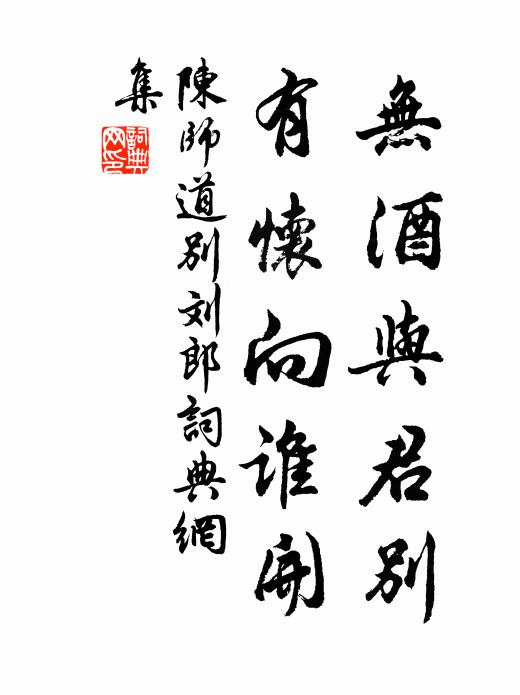 無酒與君別
有懷向誰開
陳師道別刘郎詞典網
集
詞典
网印